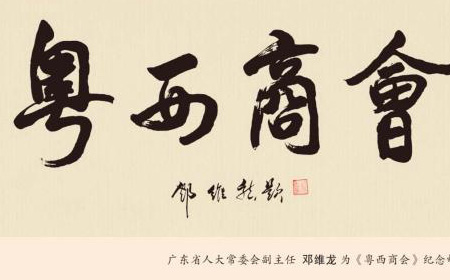 粤西商會
鄧維龍題
广东省人大常委会副主任 邓维龙 为《粤西商会》纪念